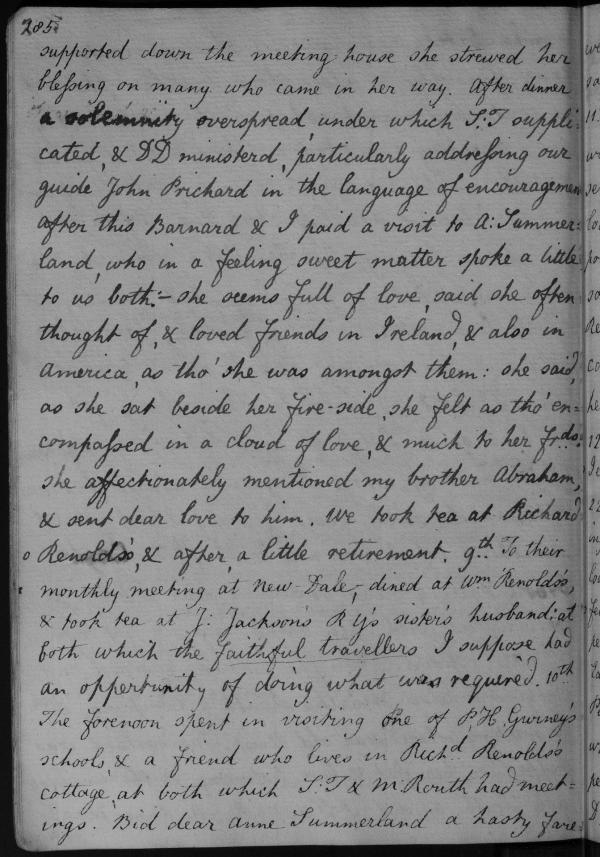 285
supported down the meeting house she strewed her
blessing on many who came in her way. After dinner
a solemnity overspread, under which S:T suppli-
cated, & DD ministerd, particularly addressing our
guide John Prichard in the language of encouragement
after this Barnard & I paid a visit to A: Summer=
land, who in a feeling sweet matter spoke a little
to us both:- she seems full of love, said she often
thought of, & loved friends in Ireland, & also in
America, as tho' she was amongst them: she said,
as she sat beside her fire-side, she felt as tho' en=
compassed in a cloud of love, & much to her frds:
she affectionately mentioned my brother Abraham,
& sent dear love to him. We took tea at Richard
Renolds's, & after, a little retirement. 9th. To their
monthly meeting at New-Dale, dined at Wm Renolds's,
& took tea at J: Jackson's R Y's sister's husband: at
both which the faithful travellers I suppose had
an oppertunity of doing what was requered. 10th
The forenoon spent in visiting one of P:H. Gurney's
schools, & a friend who lives in Richd. Renolds's
cottage, at both which S:T & M:Routh had meet=
ings. Bid dear Anne Summerland a hasty fare=